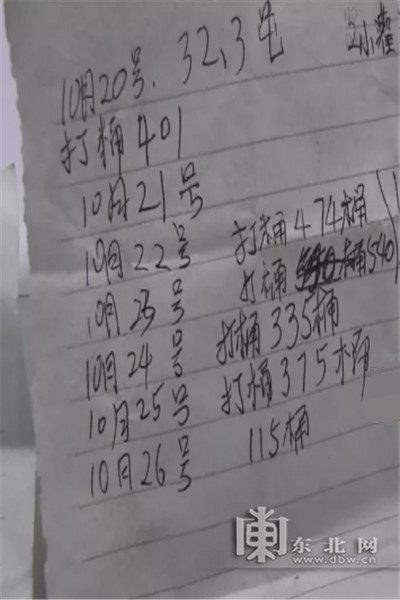 10月20号. 32.3屯
打桶401
10月21号
10月22号 打桶474桶
10月23号 打桶 桶540
10月24号 打桶335桶
10月25号 打桶375桶
10月26号 115桶
东北网
www.dbw.cn